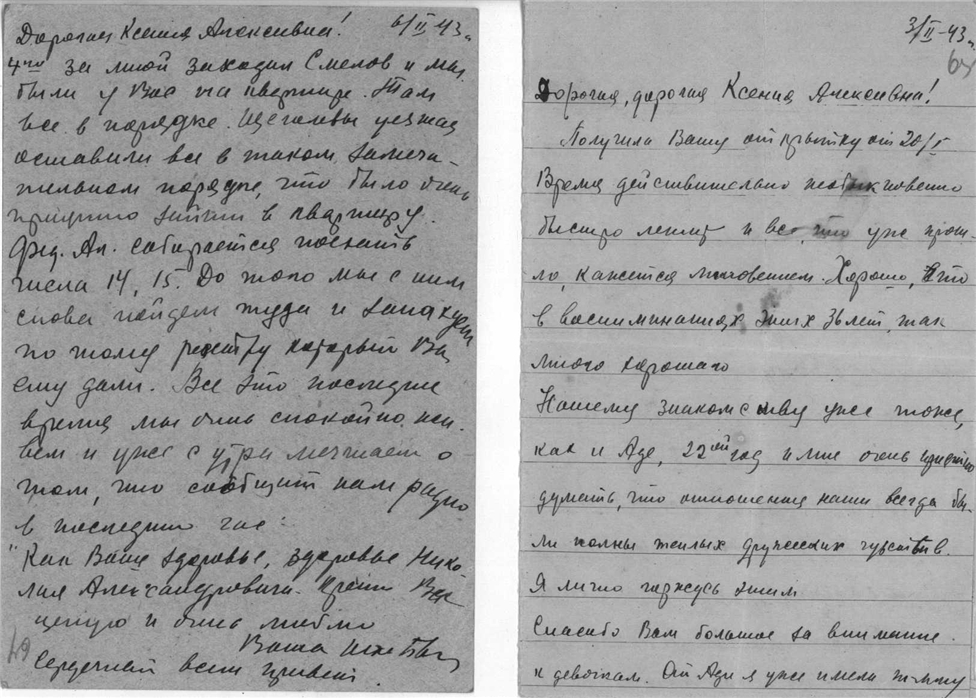 6/II-43г.
Дорогая Ксения Алексевна!
4го за мной заходил Смелов и мы
были у Вас на квартире. Там
все в порядке. Щеголевы уезжая
оставили все в таком замеча-
тельном порядке, что было очень
приятно зайти в квартиру.
Фед. Ал. собирается поехать
числа 14, 15. До того мы с ним
снова пойдем туда и запакуем
по тому реестру который Вы
ему дали. Все это последнее
время мы очень спокойно жи-
вем и уже с утра мечтаем о
том, что сообщит нам радио
в последний час.
Как Ваше здоровье, здоровье Нико-
лая Александровича. Крепко Вас
целую и очень люблю
Ваша
Сердечный всем привет.
49
3/II-43г.
64
Дорогая, дорогая Ксения Алексевна!
Получила Вашу открытку от 20/I
Время действительно необыкновенно
быстро летит и все, что уже прош-
ло, кажется мгновением. Хорошо, что
в воспоминаниях этих 36 лет, так
много хорошаго
Нашему знакомству уже тоже,
как и Аде, 22ой год и мне очень приятно
думать, что отношения наши всегда бы-
ли полны теплых дружеских чувств.
Я лично горжусь этим
Спасибо Вам большое за внимание
к девочкам. От Ади я уже имела